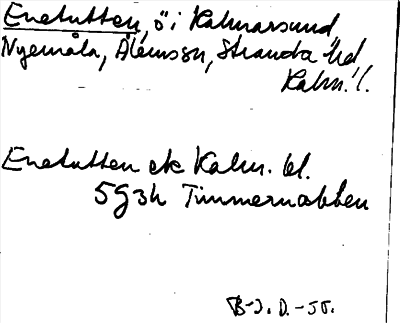 Enetutten, ö i Kalmarsund
Nyemåla, Ålemson, Stranda hd
Kalm. l.
Enetutten ek Kalm. bl.
5G3h Timmernabben
B-J. D. -55.